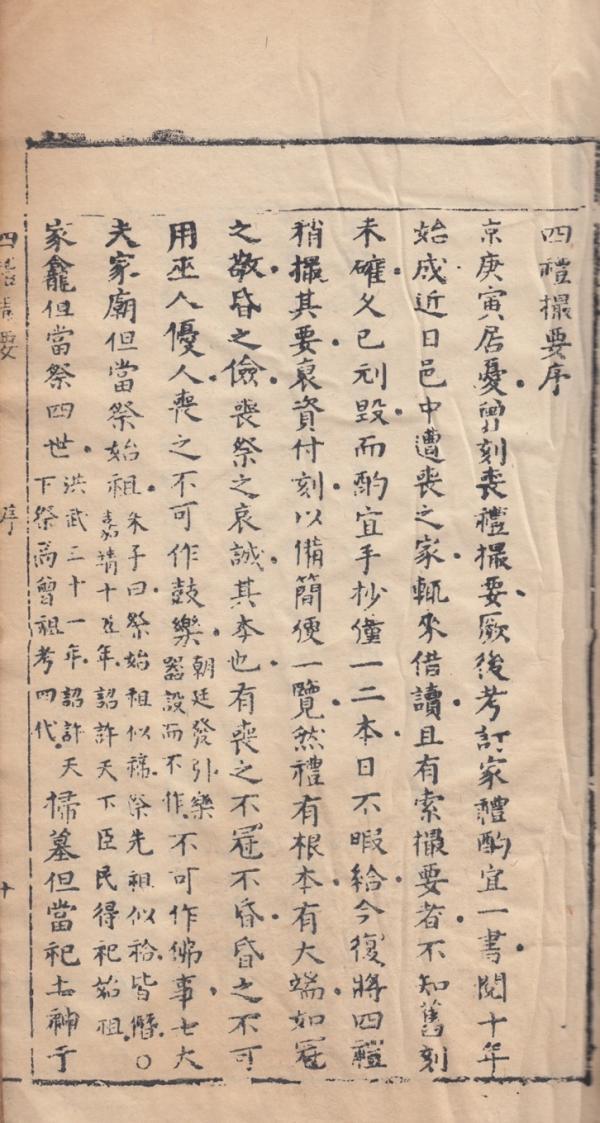 四禮撮要序
京庚寅居憂曾刻喪禮撮要厥後考訂家禮酌宜一書閱十年
始成近日邑中遭喪之家輒來借讀且有索撮要者不知舊刻
未確久已刓毀而酌宜手抄僅一二本日不暇給今復將四禮
稍撮其要裒資付刻以備簡便一覽然禮有根本有大端如冠
之敬昏之儉喪祭之哀誠其本也有喪之不冠不昏昏之不可
用巫人優人喪之不可作鼓樂朝廷發引樂器設而不作不可作佛事士大
夫家廟但當祭始祖朱子曰祭始祖似禘祭先祖似祫皆僭○嘉靖十五年詔許天下臣民得祀始祖
家龕但當祭四世洪武三十一年詔許天下祭高曾祖考四代掃墓但當祀土神于
四禮撮要 序 十